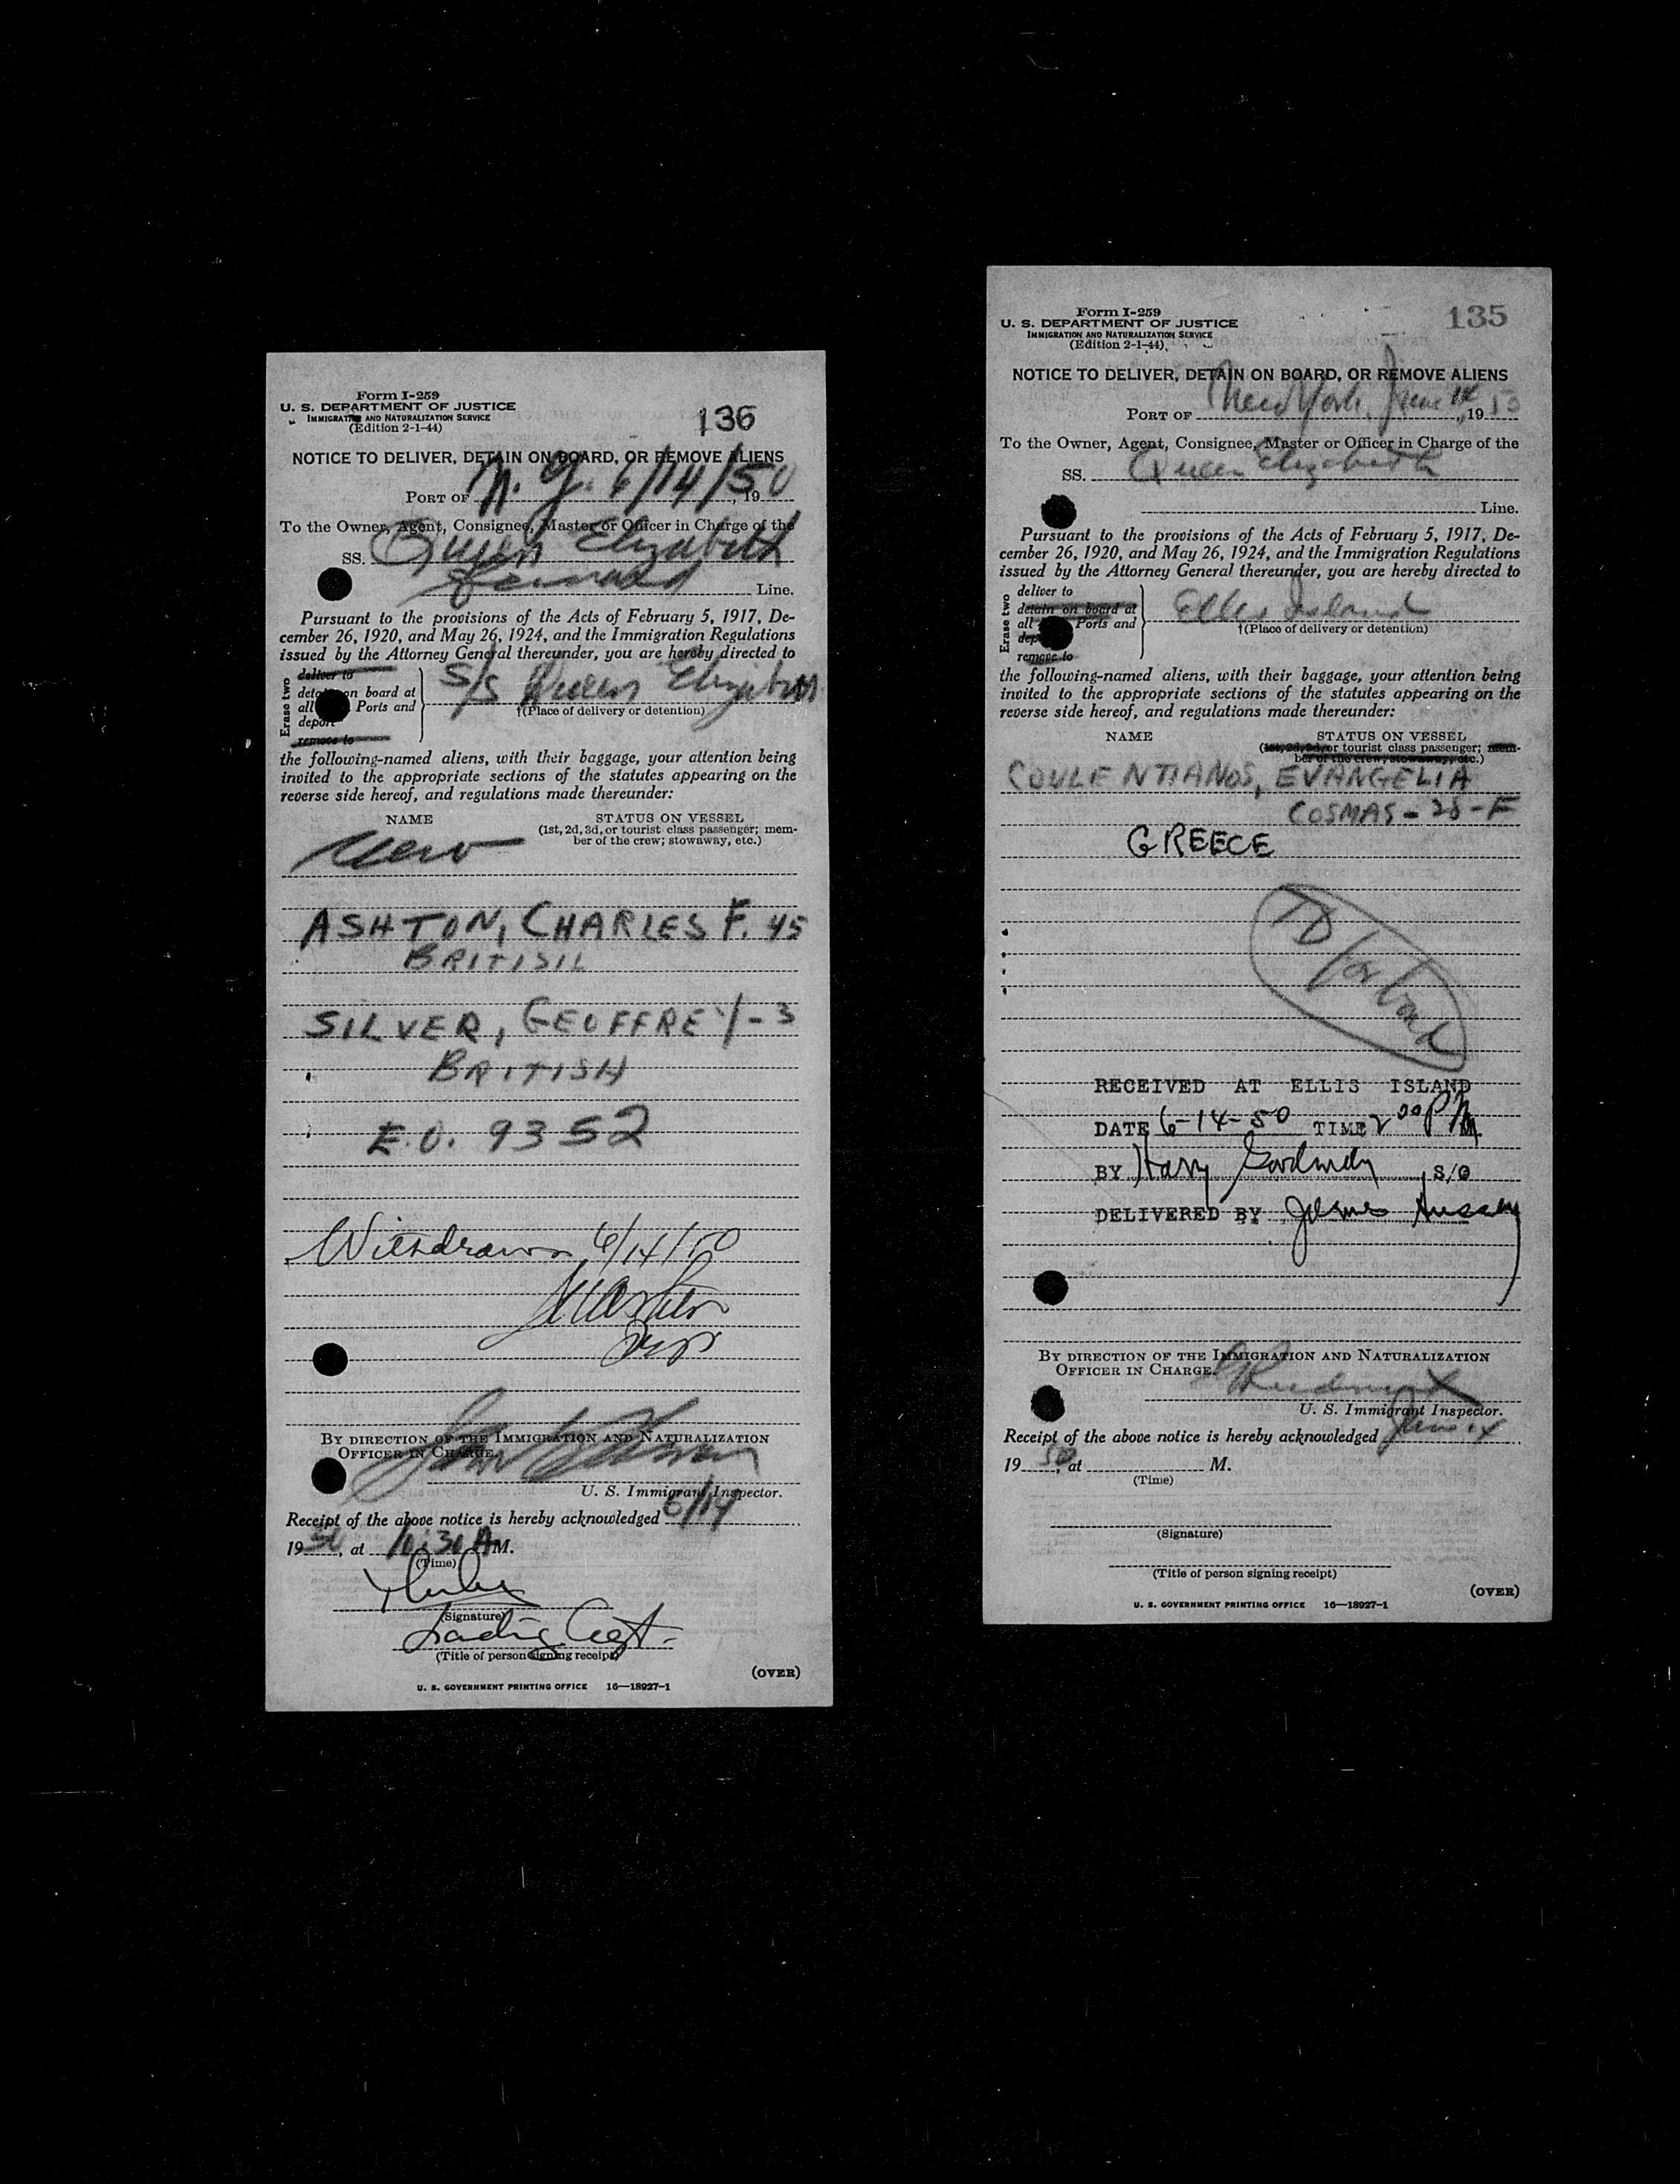 Form I-259
U. S. DEPARTMENT OF JUSTICE
IMMIGRATION AND NATURALIZATION SERVICE
(Edition 2-1-44)
136
NOTICE TO DELIVER, DETAIN ON BOARD, OR REMOVE ALIENS
PORT OF N. Y. 6/14/50, 19
To the Owner, Agent, Consignee, Master or Officer in Charge of the
SS. Queen Elizabeth
Line.
Pursuant to the provisions of the Acts of February 5, 1917, De-
cember 26, 1920, and May 26, 1924, and the Immigration Regulations
issued by the Attorney General thereunder, you are hereby directed to
Erase two
deliver to
detain on board at
all Ports and
deport
remove to
S/S Queen Elizabeth
†(Place of delivery or detention)
the following-named aliens, with their baggage, your attention being
invited to the appropriate sections of the statutes appearing on the
reverse side hereof, and regulations made thereunder:
NAME STATUS ON VESSEL
(1st, 2d, 3d, or tourist class passenger; mem-
ber of the crew; stowaway, etc.)
ASHTON, CHARLES F. 45
BRITISH
SILVER, GEOFFREY - 3
BRITISH
E.O. 9352
Withdrawn 6/14/50
BY DIRECTION OF THE IMMIGRATION AND NATURALIZATION
OFFICER IN CHARGE.
U. S. Immigrant Inspector.
Receipt of the above notice is hereby acknowledged 6/14
1950, at 10:30 AM.
(Time)
(Signature)
(Title of person signing receipt)
(OVER)
U. S. GOVERNMENT PRINTING OFFICE 16—18927-1
Form I-259
U. S. DEPARTMENT OF JUSTICE
IMMIGRATION AND NATURALIZATION SERVICE
(Edition 2-1-44)
135
NOTICE TO DELIVER, DETAIN ON BOARD, OR REMOVE ALIENS
PORT OF New York, June 14, 19
To the Owner, Agent, Consignee, Master or Officer in Charge of the
SS. Queen Elizabeth
Line.
Pursuant to the provisions of the Acts of February 5, 1917, De-
cember 26, 1920, and May 26, 1924, and the Immigration Regulations
issued by the Attorney General thereunder, you are hereby directed to
Erase two
deliver to
detain on board at
all Ports and
remove to
Ellis Island
†(Place of delivery or detention)
the following-named aliens, with their baggage, your attention being
invited to the appropriate sections of the statutes appearing on the
reverse side hereof, and regulations made thereunder:
NAME STATUS ON VESSEL
(1st, 2d, 3d, or tourist class passenger; mem-
ber of the crew; stowaway, etc.)
COULENTIANOS, EVANGELIA
COSMAS - 28 - F
GREECE
RECEIVED AT ELLIS ISLAND
DATE 6-14-50 TIME 2 00 P M.
BY Harry S/O
DELIVERED BY James Hussey
BY DIRECTION OF THE IMMIGRATION AND NATURALIZATION
OFFICER IN CHARGE.
U. S. Immigrant Inspector.
Receipt of the above notice is hereby acknowledged June 14
1950, at M.
(Time)
(Signature)
(Title of person signing receipt)
(OVER)
U. S. GOVERNMENT PRINTING OFFICE 16—18927-1